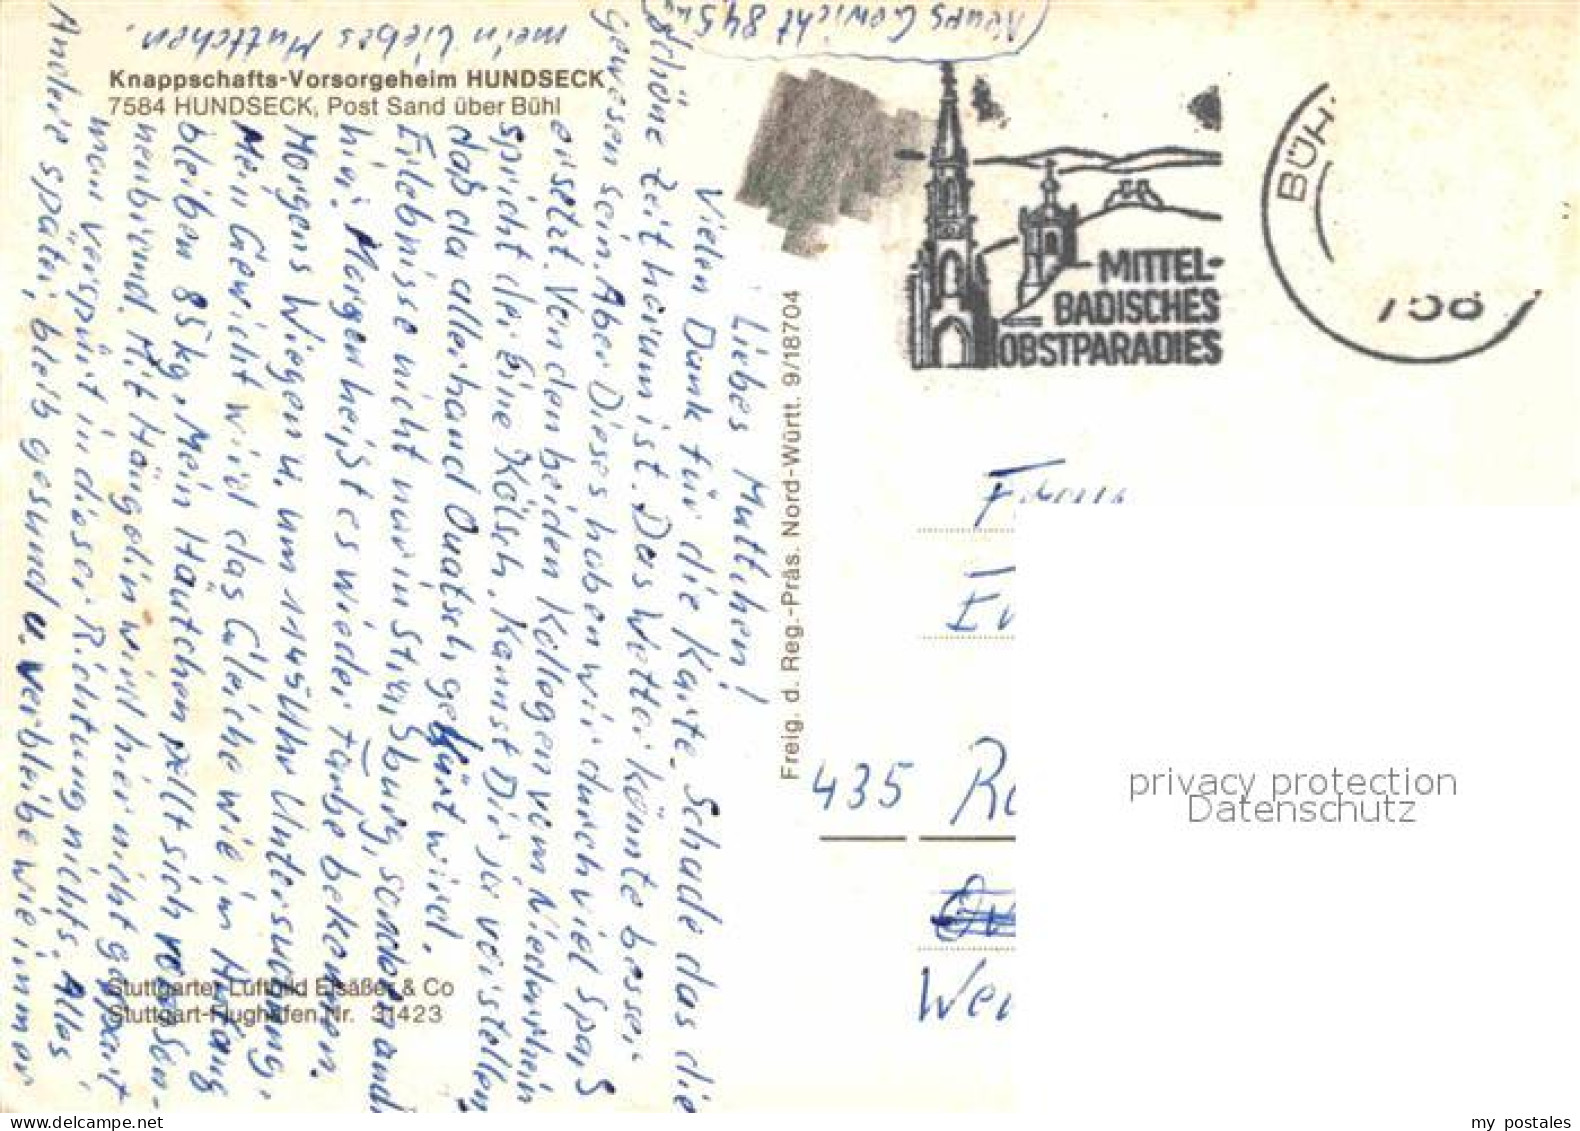 (Neues Gewicht 845
mein liebes Muttchen.
Knappschafts-Vorsorgeheim HUNDSECK
7584 HUNDSECK, Post Sand über Bühl
Liebes Muttchen!
Vielen Dank für die Karte. Schade das die
schöne Zeit herum ist. Das Wetter könnte besser
gewesen sein. Aber Dieses haben wir durch viel Spaß
ersetzt. Von den beiden Kollegen vom Niederrhein
spricht der Eine Kölsch. Kannst Dir ja vorstellen
daß da allerhand Quatsch geführt wird.
Erlebnisse nicht nur in Straßburg, sondern auch
hier. Morgen heißt es wieder Farbe bekommen.
Morgens Wiegen u. um 11 45 Uhr Untersuchung.
Mein Gewicht wird das Gleiche wie im Anfang
bleiben 85 kg. Mein Häutchen pellt sich vom Son-
nenbrand. Mit Hängolin wird hier nicht gespart
man verspürt in dieser Richtung nichts. Alles
Andere später, bleib gesund u. verbleibe wie immer
Stuttgarter Luftbild Elsäßer & Co
Stuttgart-Flughafen Nr. 31423
Freig. d. Reg.-Präs. Nord-Württ. 9/18704
MITTEL-
BADISCHES
OBSTPARADIES
BÜH
758
Frau
435 Re
We
privacy protection
Datenschutz
www.delcampe.net
my postales